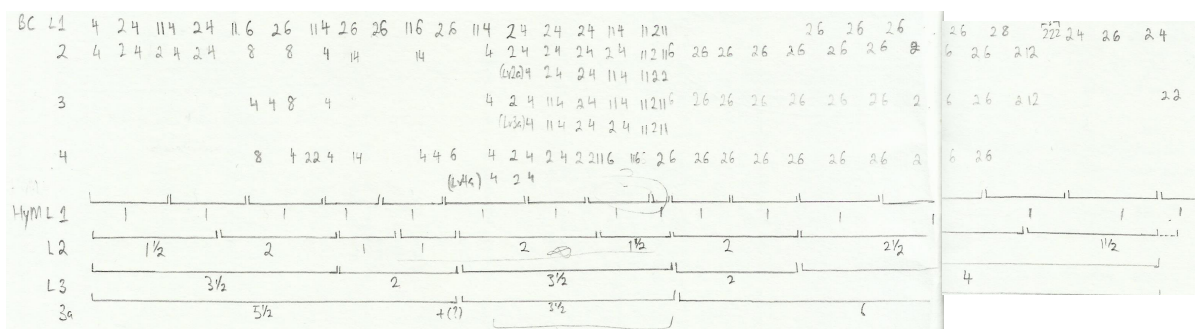 BC L1 4 24 114 24 116 26 114 26 26 116 26 114 24 24 24 114 11211 26 26 26 26 28 222 24 26 24
2 4 24 24 24 8 8 4 14 14 4 24 24 24 24 11211 6 26 26 26 26 26 26 2 6 26 212
(Lv2a) 4 24 24 114 1122
3 4 4 8 4 4 24 114 24 114 11211 6 26 26 26 26 26 26 2 6 26 212 22
(Lv3a) 4 114 24 24 11211
4 8 4 22 4 14 4 4 6 4 24 24 2 2116 116 26 26 26 26 26 26 2 6 26
(Lv4a) 4 24
HyM L1 1 1 1 1 1 1 1 1 1 1 1 1 1 1 1 1
L2 1½ 2 1 1 2 1½ 2 2½ 1½
L3 3½ 2 3½ 2 4
3a 5½ +(?) 3½ 6